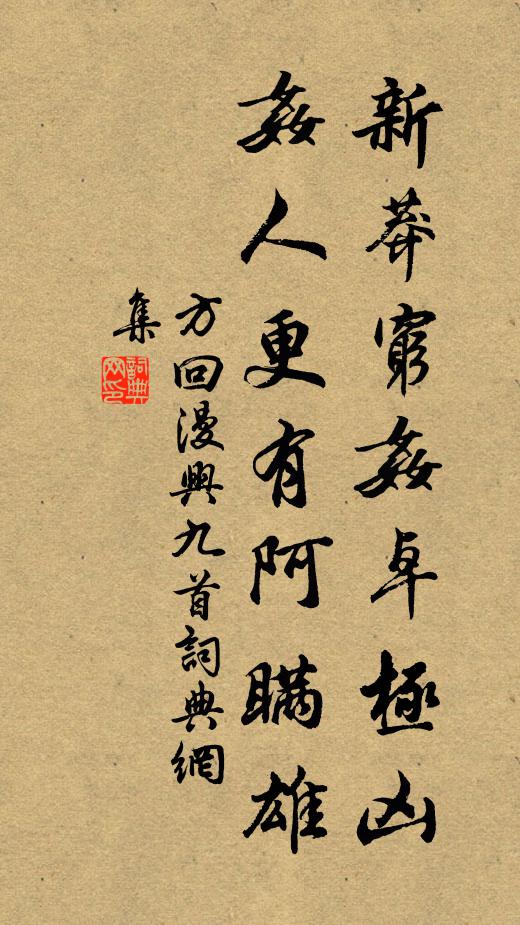 新莽窮姦卓極凶
姦人更有阿瞞雄
方回漫興九首詞典網
集
詞典
网印